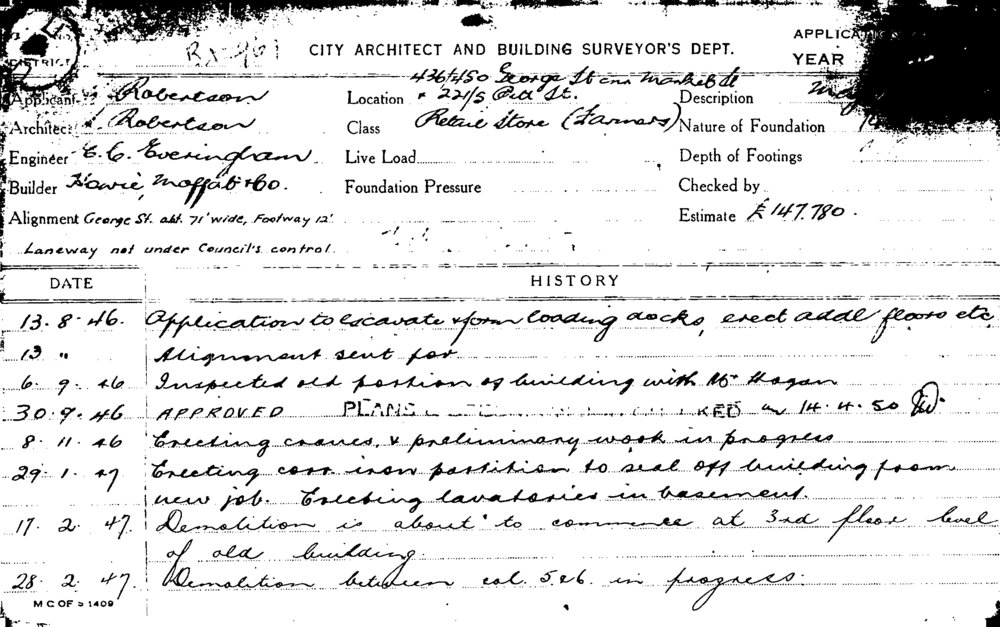 DISTRICT
CITY ARCHITECT AND BUILDING SURVEYOR'S DEPT.
YEAR
Applicant Robertson
Location 436/450 George St cnr Market St
& 221/5 Pitt St.
Description
Architect Robertson
Class Retail Store (Farmers)
Nature of Foundation
Engineer E. C. Everingham
Live Load
Depth of Footings
Builder Howie, Moffat & Co.
Foundation Pressure
Checked by
Alignment George St. abt. 71' wide, Footway 12'.
Estimate £147.780.
Laneway not under Council's control.
DATE HISTORY
13. 8. 46. Application to excavate & form loading docks, erect addl floors etc
13 " Alignment sent for
6. 9. 46 Inspected old portion of building with Mr Hogan
30. 9. 46 APPROVED PLANS 14. 4. 50
8. 11. 46 Erecting cranes, & preliminary work in progress
29. 1. 47 Erecting corr iron partition to seal off building from
new job. Erecting lavatories in basement.
17. 2. 47. Demolition is about to commence at 3rd floor level
of old building.
28. 2. 47. Demolition between col. 5 & 6. in progress.
M C OF S 1409